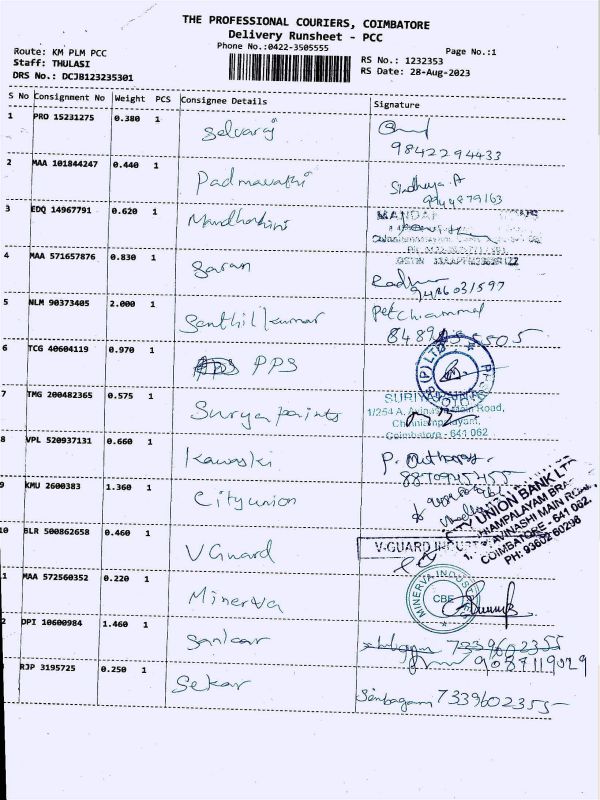 THE PROFESSIONAL COURIERS, COIMBATORE
Delivery Runsheet - PCC
Phone No.:0422-3505555
Page No.:1
Route: KM PLM PCC
RS No.: 1232353
Staff: THULASI
RS Date: 28-Aug-2023
DRS No.: DCJB123235301
S No Consignment No Weight PCS Consignee Details Signature
1 PRO 15231275 0.380 1 Selvaraj
9842294433
2 MAA 101844247 0.440 1 Padmavathi Sindhuya.A
9944879163
3 EDQ 14967791 0.620 1
4 MAA 571657876 0.830 1 Saran
9486031597
5 NLM 90373405 2.000 1 Senthilkumar Petchiammal
6 TCG 40604119 0.970 1 PPS
(P) LTD
7 TMG 200482365 0.575 1 Surya paints
1/254 A, Avinashi Main Road,
Chinniampalayam,
Coimbatore - 641 062
8 VPL 520937131 0.660 1 Kawaski
9 KMU 2600383 1.360 1 City union
CITY UNION BANK LTD
CHINNIAMPALAYAM BRANCH
AVINASHI MAIN ROAD,
COIMBATORE - 641 062.
PH: 93602 60298
10 BLR 500862658 0.460 1 V Guard V-GUARD
1 MAA 572560352 0.220 1 Minerva
MINERVA INDUSTRIES
CBE
2 DPI 10600984 1.460 1 Sankar 7339602355
9087119029
RJP 3195725 0.250 1 Sekar Senbagam 7339602355